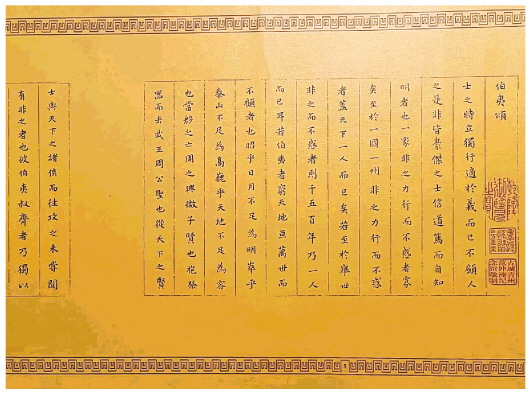 伯夷頌
士之特立獨行適於義而已不顧人
之是非皆豪傑之士信道篤而自知
明者也一家非之力行而不惑者寡
矣至於一國一州非之力行而不惑
者蓋天下一人而已矣若至於舉世
非之而不惑者則千五百年乃一人
而已耳若伯夷者窮天地亘萬世而
不顧者也昭乎日月不足為明崒乎
泰山不足為高巍乎天地不足為容
也當殷之亡周之興微子賢也抱祭
器而去武王周公聖也從天下之賢
士與天下之諸侯而往攻之未嘗聞
有非之者也彼伯夷叔齊者乃獨以